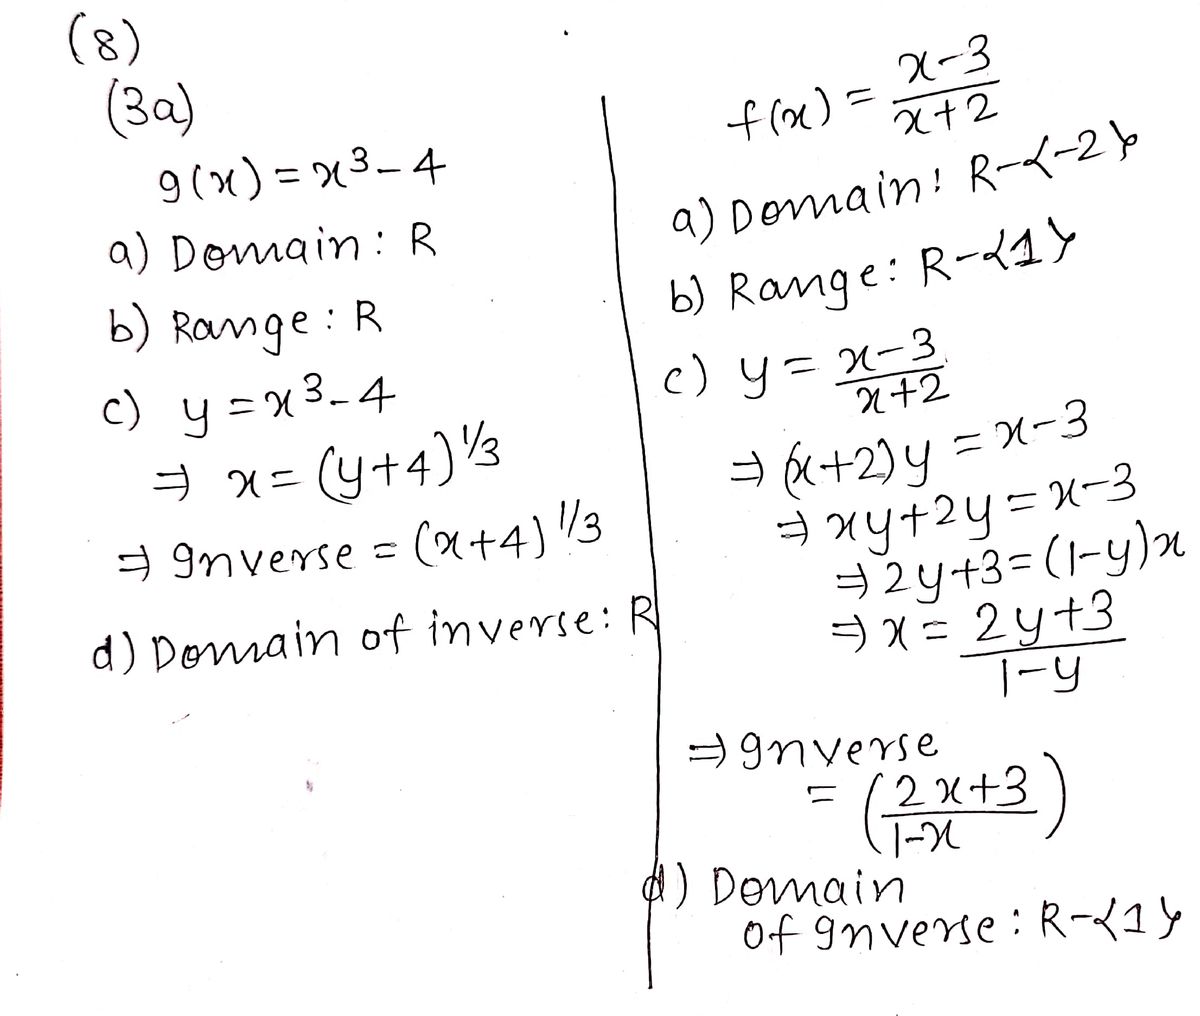 (8)
(3a)
g(x) = x³-4
a) Domain: R
b) Range: R
c) y = x³-4
⇒ x = (y+4)^1/3
⇒ Inverse = (x+4)^1/3
d) Domain of inverse: R
f(x) = (x-3)/(x+2)
a) Domain: R-{-2}
b) Range: R-{1}
c) y = (x-3)/(x+2)
⇒ (x+2)y = x-3
⇒ xy+2y = x-3
⇒ 2y+3 = (1-y)x
⇒ x = (2y+3)/(1-y)
⇒ Inverse
= ((2x+3)/(1-x))
d) Domain
of Inverse: R-{1}